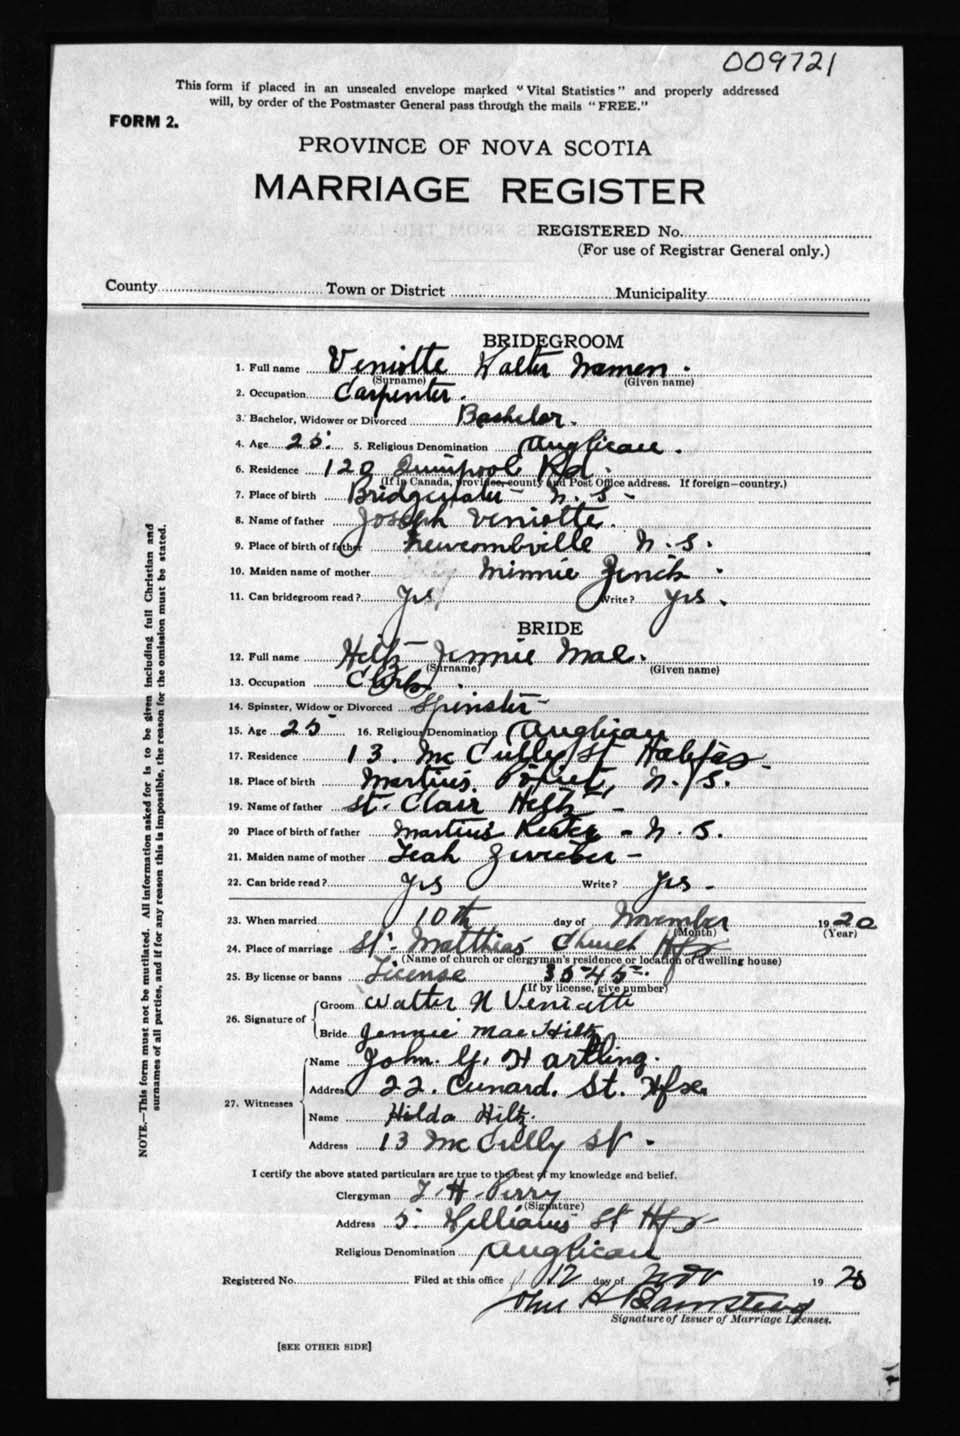 009721
This form if placed in an unsealed envelope marked "Vital Statistics" and properly addressed
will, by order of the Postmaster General pass through the mails "FREE."
FORM 2.
PROVINCE OF NOVA SCOTIA
MARRIAGE REGISTER
REGISTERED No.
(For use of Registrar General only.)
County Town or District Municipality
BRIDEGROOM
1. Full name Veniotte Walter Namen.
(Surname) (Given name)
2. Occupation Carpenter.
3. Bachelor, Widower or Divorced Bachelor.
4. Age 25. 5. Religious Denomination Anglican.
6. Residence 120 Quinpool Rd.
(If in Canada, province, county and Post Office address. If foreign—country.)
7. Place of birth Bridgewater - N. S -
8. Name of father Joseph Veniotte.
9. Place of birth of father Newcombville N. S.
10. Maiden name of mother Minnie Zinck.
11. Can bridegroom read? Yes Write? Yes.
BRIDE
12. Full name Hiltz Jennie Mae.
(Surname) (Given name)
13. Occupation Clerk.
14. Spinster, Widow or Divorced Spinster
15. Age 25 16. Religious Denomination Anglican
17. Residence 13. McCully St Halifax -
18. Place of birth Martins Point, N. S.
19. Name of father St. Clair Hiltz -
20 Place of birth of father Martins - N. S.
21. Maiden name of mother Leah -
22. Can bride read? Yes Write? Yes -
23. When married 10th day of November 1920
(Month) (Year)
24. Place of marriage St. Matthias Church Hfx
(Name of church or clergyman's residence or location of dwelling house)
25. By license or banns License 3545.
(If by license, give number)
26. Signature of
Groom Walter N Veniotte
Bride Jennie Mae Hiltz
27. Witnesses
Name John. Y. Hartling.
Address 22. Cunard. St. Hfx.
Name Hilda Hiltz.
Address 13 McCully St.
I certify the above stated particulars are true to the best of my knowledge and belief.
Clergyman T. H. Perry
(Signature)
Address 5. Williams St Hfx
Religious Denomination Anglican
Registered No. Filed at this office 12 day of Nov 19 20
John H Barnstead
Signature of Issuer of Marriage Licenses.
[SEE OTHER SIDE]
NOTE.—This form must not be mutilated. All information asked for is to be given including full Christian and
surnames of all parties, and if for any reason this is impossible, the reason for the omission must be stated.